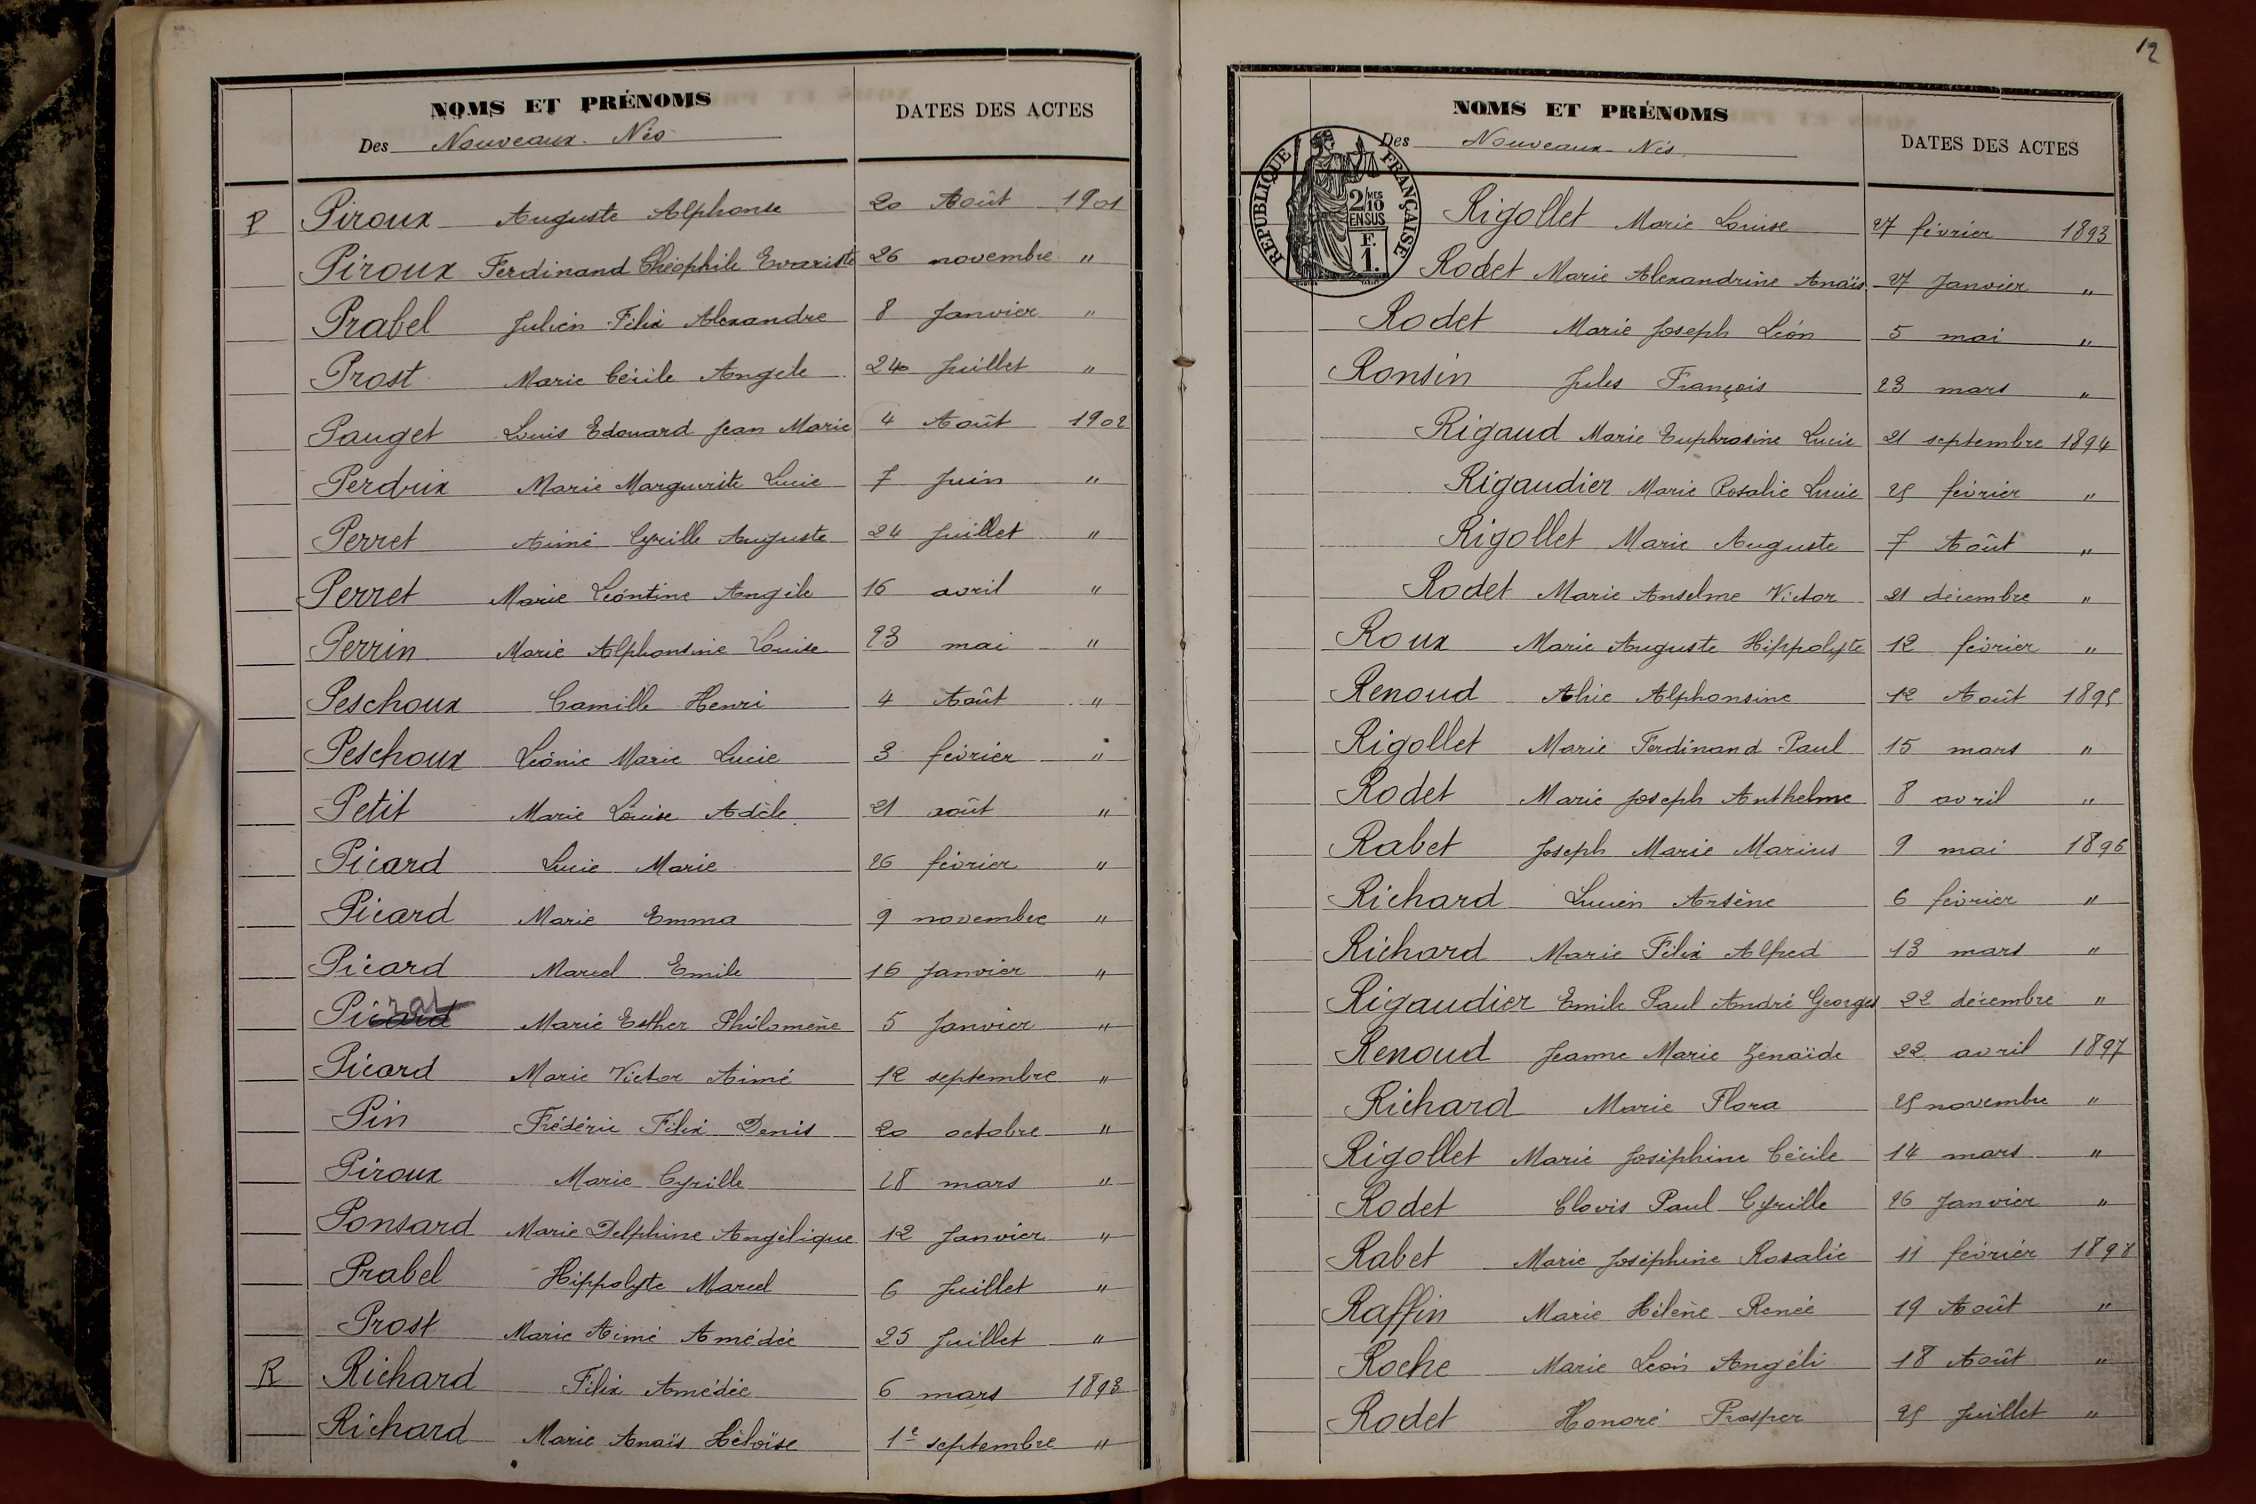 NOMS ET PRÉNOMS
Des Nouveaux-Nés
DATES DES ACTES
P Piroux Auguste Alphonse 20 Août 1901
Piroux Ferdinand Théophile Evariste 26 novembre "
Prabel Julien Félix Alexandre 8 Janvier "
Prost Marie Cécile Angèle 24 Juillet "
Pauget Louis Edouard Jean Marie 4 Août 1902
Perdrix Marie Marguerite Lucie 7 Juin "
Perret Aimé Cyrille Auguste 24 Juillet "
Perret Marie Léontine Angèle 16 avril "
Perrin Marie Alphonsine Louise 23 mai "
Peschoux Camille Henri 4 Août "
Peschoux Léonie Marie Lucie 3 février "
Petit Marie Louise Adèle 21 août "
Picard Lucie Marie 26 février "
Picard Marie Emma 9 novembre "
Picard Marcel Emile 16 Janvier "
Picard Marie Esther Philomène 5 Janvier "
Picard Marie Victor Aimé 12 septembre "
Pin Frédéric Félix Denis 20 octobre "
Piroux Marie Cyrille 28 mars "
Ponsard Marie Delphine Angélique 12 Janvier "
Prabel Hippolyte Marcel 6 Juillet "
Prost Marie Aimé Amédée 25 Juillet "
R Richard Félix Amédée 6 mars 1893
Richard Marie Anaïs Héloïse 1e septembre "
12
NOMS ET PRÉNOMS
Des Nouveaux-Nés
DATES DES ACTES
RÉPUBLIQUE FRANÇAISE
2/10 MES
EN SUS
F.
1.
Rigollet Marie Louise 27 février 1893
Rodet Marie Alexandrine Anaïs 27 Janvier "
Rodet Marie Joseph Léon 5 mai "
Ronsin Jules François 23 mars "
Rigaud Marie Euphrasine Lucie 21 septembre 1894
Rigaudier Marie Rosalie Lucie 25 février "
Rigollet Marie Auguste 7 Août "
Rodet Marie Anselme Victor 21 décembre "
Roux Marie Auguste Hippolyte 12 février "
Renoud Alice Alphonsine 12 Août 1895
Rigollet Marie Ferdinand Paul 15 mars "
Rodet Marie Joseph Anthelme 8 avril "
Rabet Joseph Marie Marius 9 mai 1896
Richard Lucien Arsène 6 février "
Richard Marie Félix Alfred 13 mars "
Rigaudier Emile Paul André Georges 22 décembre "
Renoud Jeanne Marie Zénaïde 22 avril 1897
Richard Marie Flora 25 novembre "
Rigollet Marie Joséphine Cécile 14 mars "
Rodet Clovis Paul Cyrille 26 Janvier "
Rabet Marie Joséphine Rosalie 11 février 1898
Raffin Marie Hélène Renée 19 Août "
Roche Marie Léon Angéli 18 Août "
Rodet Honoré Prosper 25 Juillet "